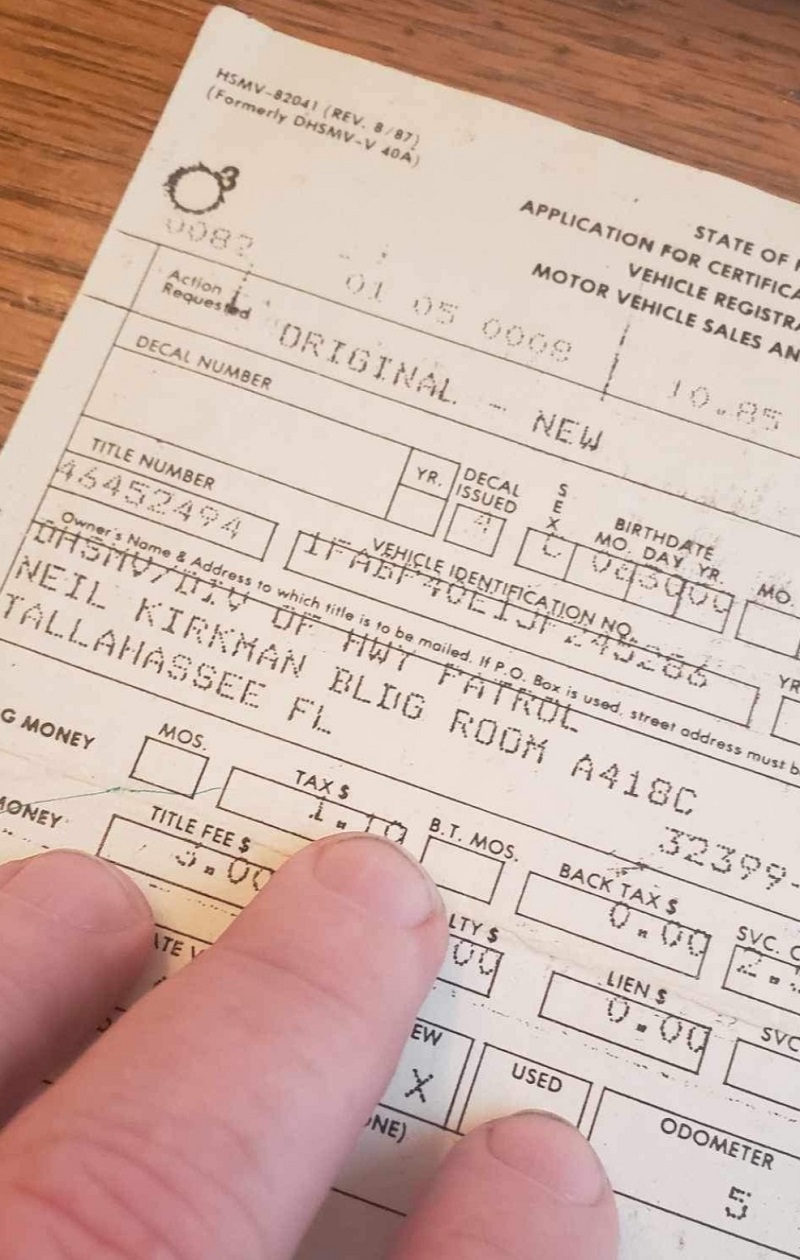 HSMV-82041 (REV. 8/87)
(Formerly DHSMV-V 40A)
O3
0082
STATE OF
APPLICATION FOR
VEHICLE
MOTOR VEHICLE SALES
Action
Requested
01 05 0008
10.85
ORIGINAL - NEW
DECAL NUMBER
TITLE NUMBER
46452494
YR.
DECAL
ISSUED
4
SEX
BIRTHDATE
MO. DAY YR.
MO.
VEHICLE IDENTIFICATION NO.
YR
Owner's Name & Address to which title is to be mailed. If P.O. Box is used, street address must
DHSMV/DIV OF HWY PATROL
NEIL KIRKMAN BLDG ROOM A418C
TALLAHASSEE FL
32399-
G MONEY
MOS.
TAX $
1.10
B.T. MOS.
BACK TAX $
0.00
SVC.
MONEY
TITLE FEE $
3.00
LTY $
00
LIEN $
0.00
SVC
EW
X
USED
ODOMETER
5